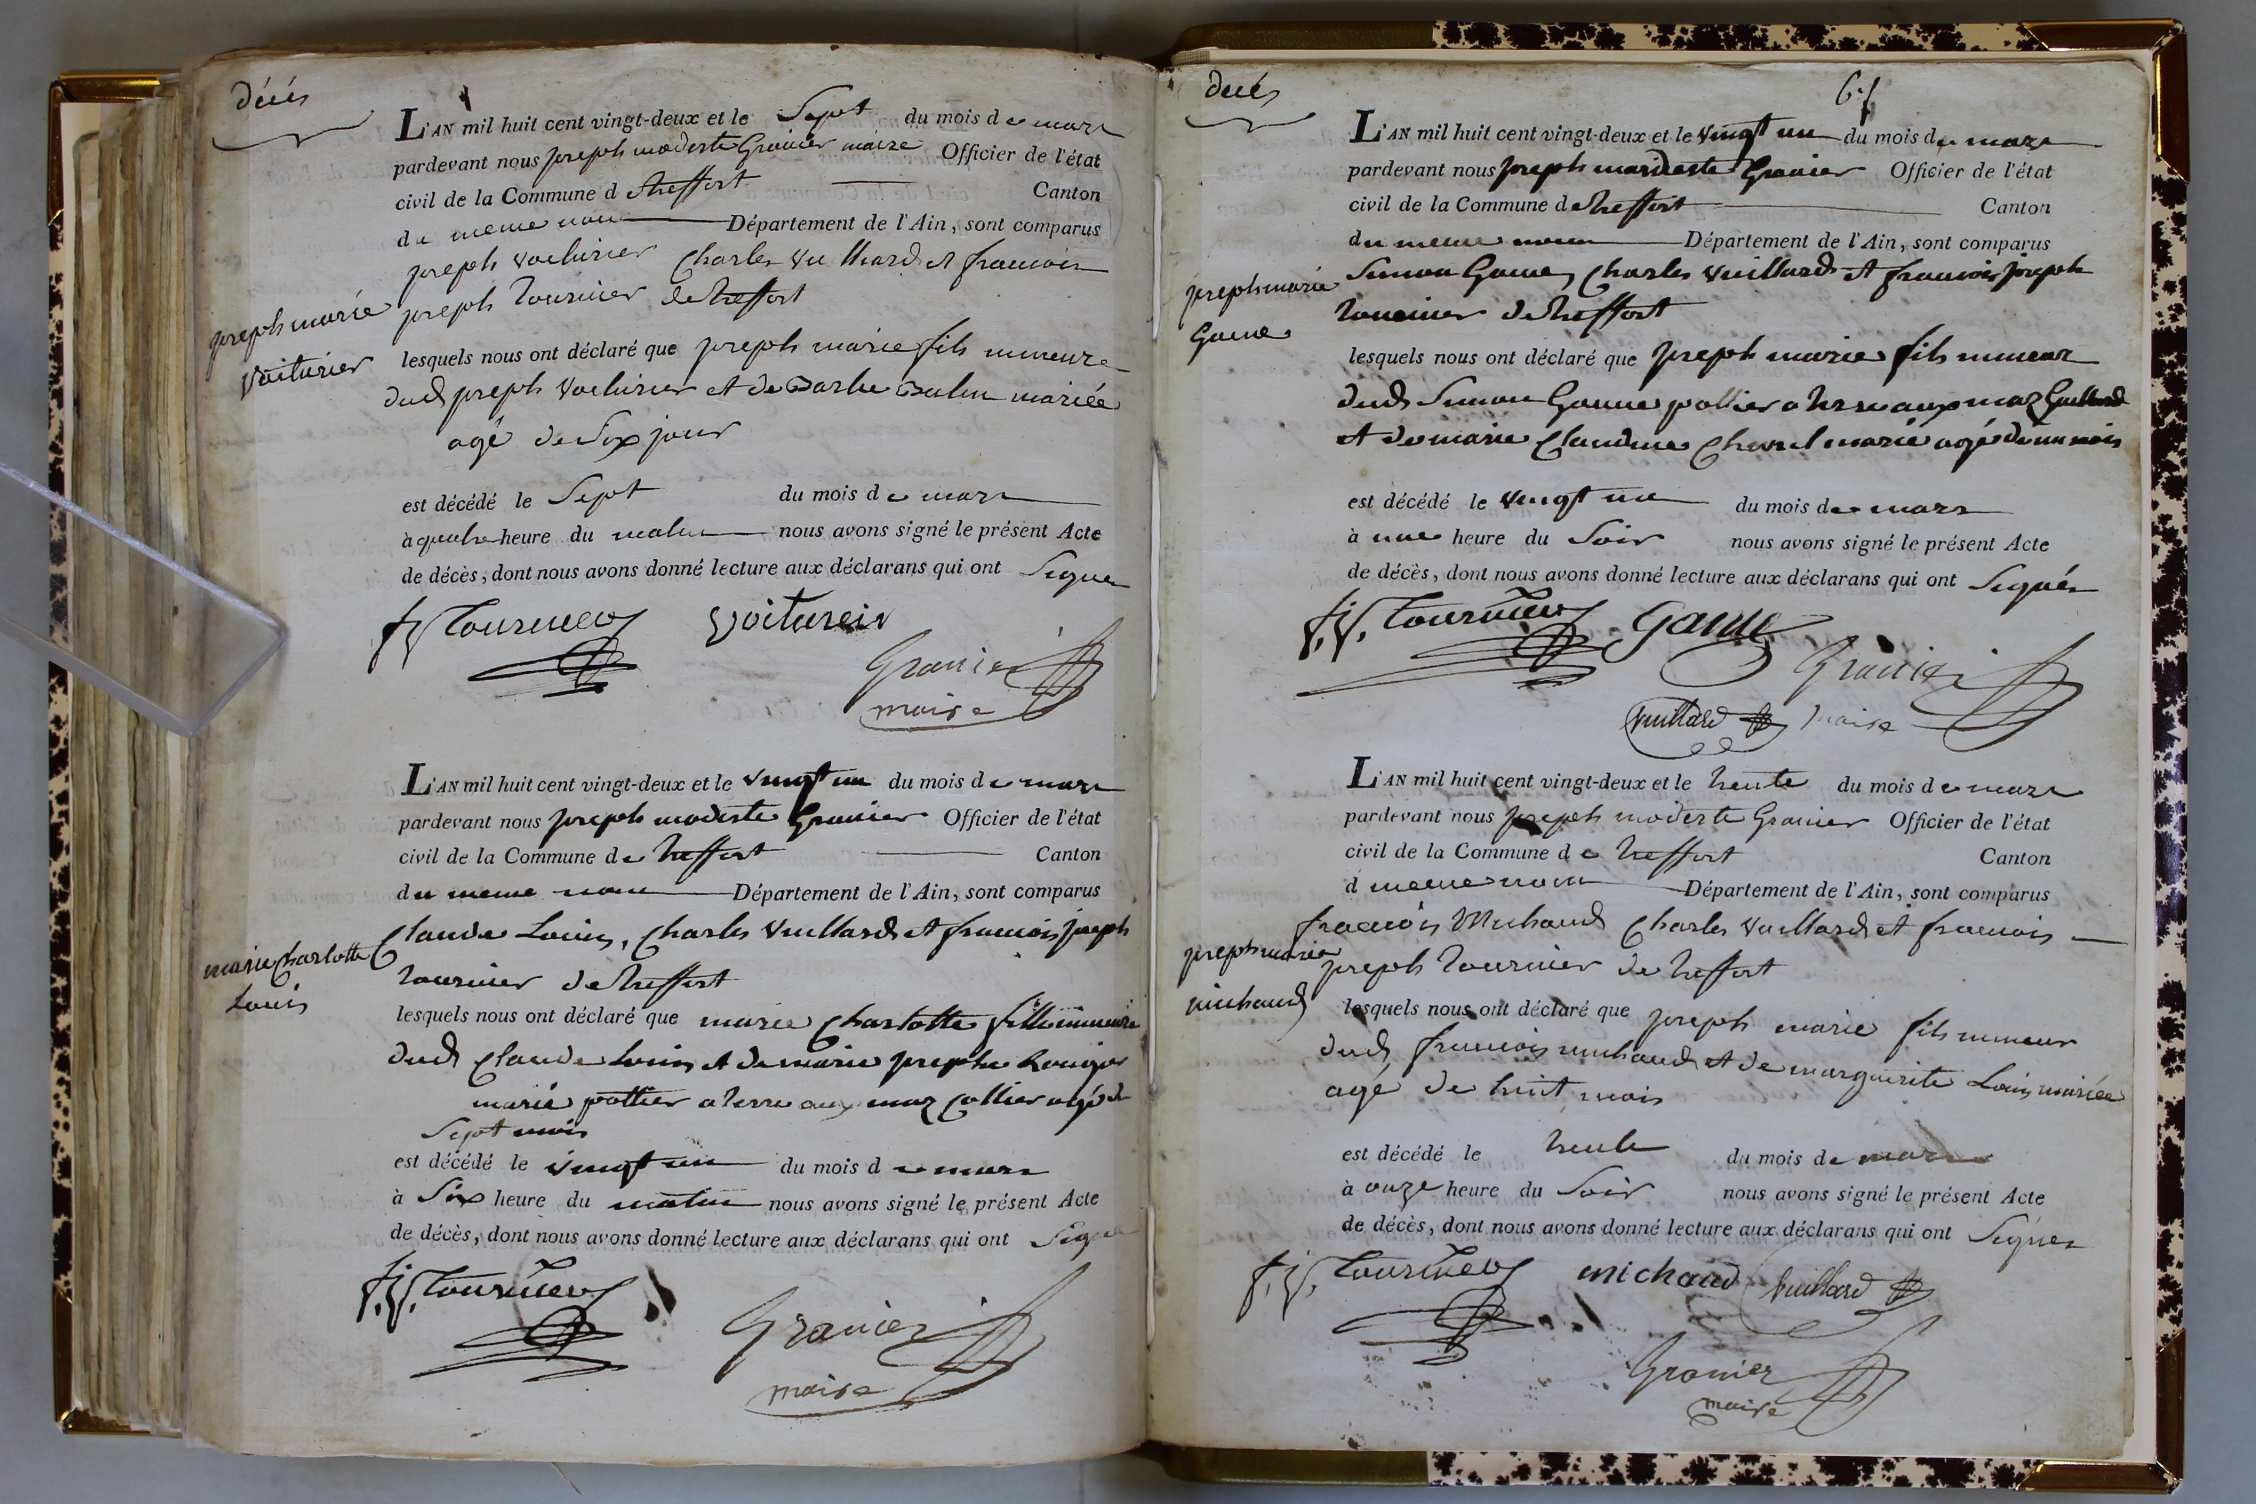 décès
L'AN mil huit cent vingt-deux et le Sept du mois de mars
pardevant nous joseph modeste Granier maire Officier de l'état
civil de la Commune d treffort Canton
du meme nom Département de l'Ain, sont comparus
joseph voiturier Charles Vuillard et francois
joseph tournier de treffort
joseph marie
voiturier
lesquels nous ont déclaré que joseph marie fils mineur
dud joseph voiturier et de Barbe mariée
agé de Six jour
est décédé le Sept du mois de mars
à quatre heure du matin nous avons signé le présent Acte
de décès, dont nous avons donné lecture aux déclarans qui ont Signé
f j Tournier voiturier
Granier
maire
L'AN mil huit cent vingt-deux et le vingt un du mois de mars
pardevant nous joseph modeste Granier Officier de l'état
civil de la Commune de treffort Canton
du meme nom Département de l'Ain, sont comparus
Claude Louis, Charles Vuillard et francois joseph
tournier de treffort
marie Charlotte
Louis
lesquels nous ont déclaré que marie Charlotte fille mineure
dud Claude Louis et de marie josephe
marié pottier a terre aux maz Collier agé de
Sept mois
est décédé le vingt un du mois de mars
à Six heure du matin nous avons signé le présent Acte
de décès, dont nous avons donné lecture aux déclarans qui ont Signé
f. j. Tournier
Granier
maire
décés
61
L'AN mil huit cent vingt-deux et le vingt un du mois de mars
pardevant nous joseph modeste Granier Officier de l'état
civil de la Commune de treffort Canton
du meme nom Département de l'Ain, sont comparus
Simon Game, Charles Vuillard et francois joseph
tournier de treffort
joseph marie
Game
lesquels nous ont déclaré que joseph marie fils mineur
dud Simon Game pottier a terre aux maz Guillard
et de marie Claudine marié agé d'un mois
est décédé le vingt un du mois de mars
à une heure du Soir nous avons signé le présent Acte
de décès, dont nous avons donné lecture aux déclarans qui ont Signés
f. j. Tournier Game
Granier
Vuillard maire
L'AN mil huit cent vingt-deux et le trente du mois de mars
pardevant nous joseph modeste Granier Officier de l'état
civil de la Commune de treffort Canton
d meme nom Département de l'Ain, sont comparus
francois Michaud Charles Vuillard et francois
joseph tournier de treffort
joseph marie
michaud
lesquels nous ont déclaré que joseph marie fils mineur
dud francois michaud et de marguerite Louis mariée
agé de huit mois
est décédé le trente du mois de mars
à onze heure du Soir nous avons signé le présent Acte
de décès, dont nous avons donné lecture aux déclarans qui ont Signés
f. j. Tournier michaud Vuillard
Granier
maire